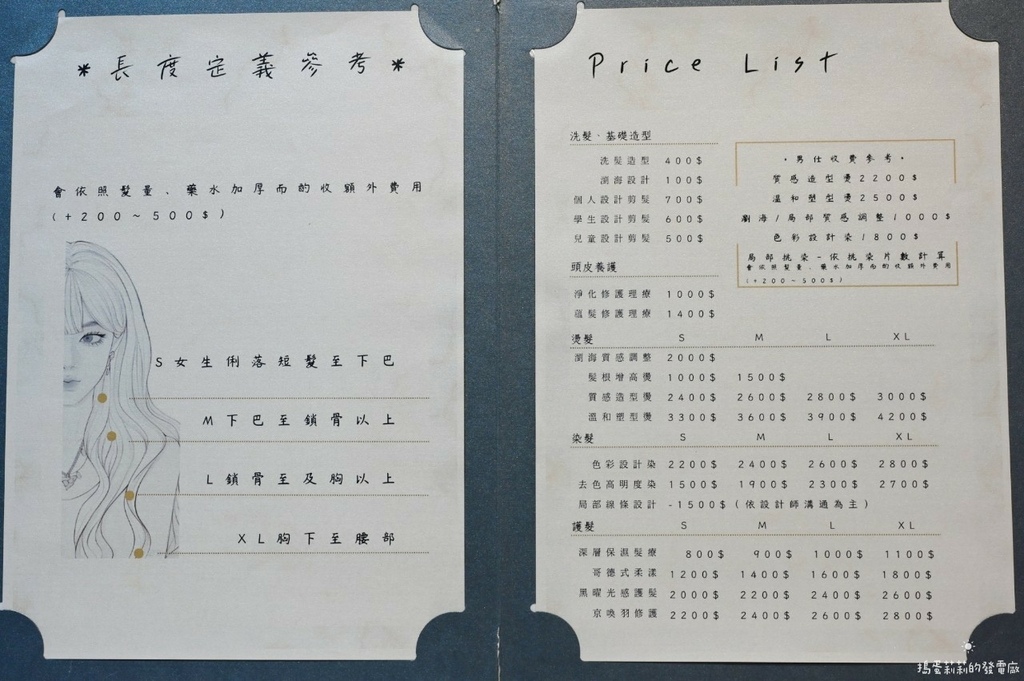 * 長度定義參考 *
會依照髮量、藥水加厚而酌收額外費用
(+200~500$)
S女生俐落短髮至下巴
M下巴至鎖骨以上
L鎖骨至及胸以上
XL胸下至腰部
Price List
洗髮、基礎造型
洗髮造型 400$
瀏海設計 100$
個人設計剪髮 700$
學生設計剪髮 600$
兒童設計剪髮 500$
•男仕收費參考•
質感造型燙2200$
溫和塑型燙2500$
瀏海/局部質感調整1000$
色彩設計染1800$
局部挑染-依挑染片數計算
會依照髮量、藥水加厚而酌收額外費用
(+200~500$)
頭皮養護
淨化修護理療 1000$
蘊髮修護理療 1400$
燙髮 S M L XL
瀏海質感調整 2000$
髮根增高燙 1000$ 1500$
質感造型燙 2400$ 2600$ 2800$ 3000$
溫和塑型燙 3300$ 3600$ 3900$ 4200$
染髮 S M L XL
色彩設計染 2200$ 2400$ 2600$ 2800$
去色高明度染 1500$ 1900$ 2300$ 2700$
局部線條設計 -1500$(依設計師溝通為主)
護髮 S M L XL
深層保濕髮療 800$ 900$ 1000$ 1100$
哥德式柔漾 1200$ 1400$ 1600$ 1800$
黑曜光感護髮 2000$ 2200$ 2400$ 2600$
京喚羽修護 2200$ 2400$ 2600$ 2800$
搗蛋莉莉的發電廠